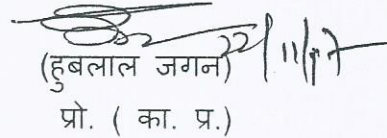 22/11/17
(हुबलाल जगन)
प्रो. ( का. प्र.)